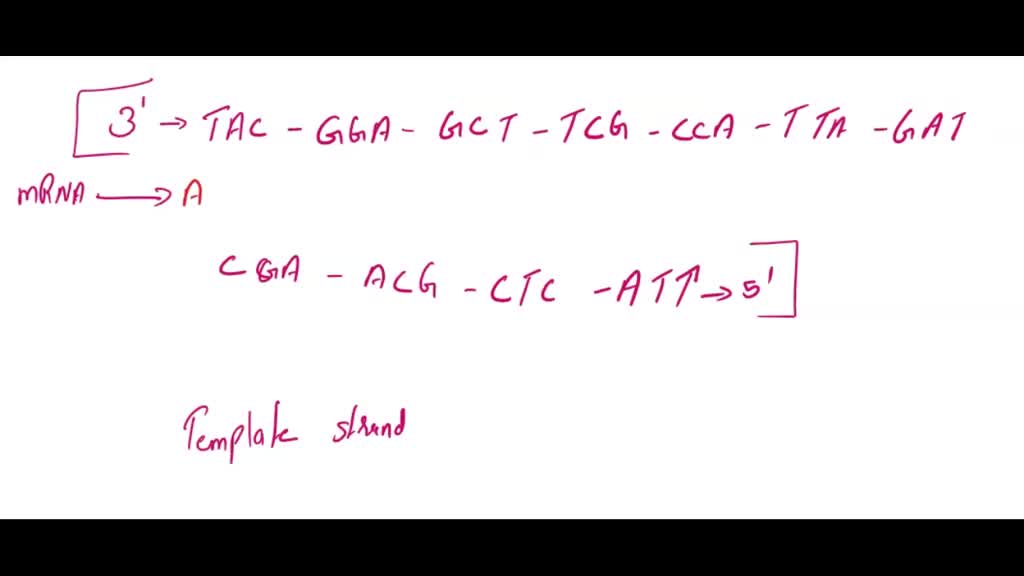 3' → TAC - GGA - GCT - TCG - CCA - TTA - GAT
mRNA → A
CGA - ACG - CTC - ATT → 5'
Template strand